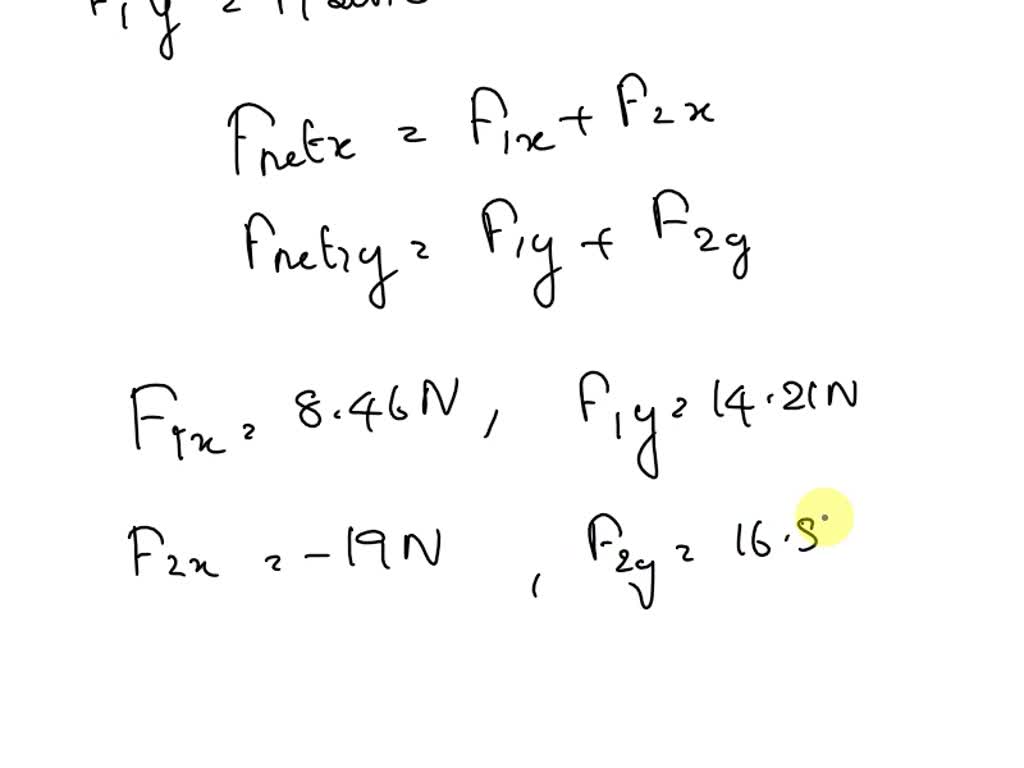 F1y =
Fnetx = F1x + F2x
Fnet,y = F1y + F2y
F1x = 8.46 N, F1y = 14.21 N
F2x = -19 N, F2y = 16.